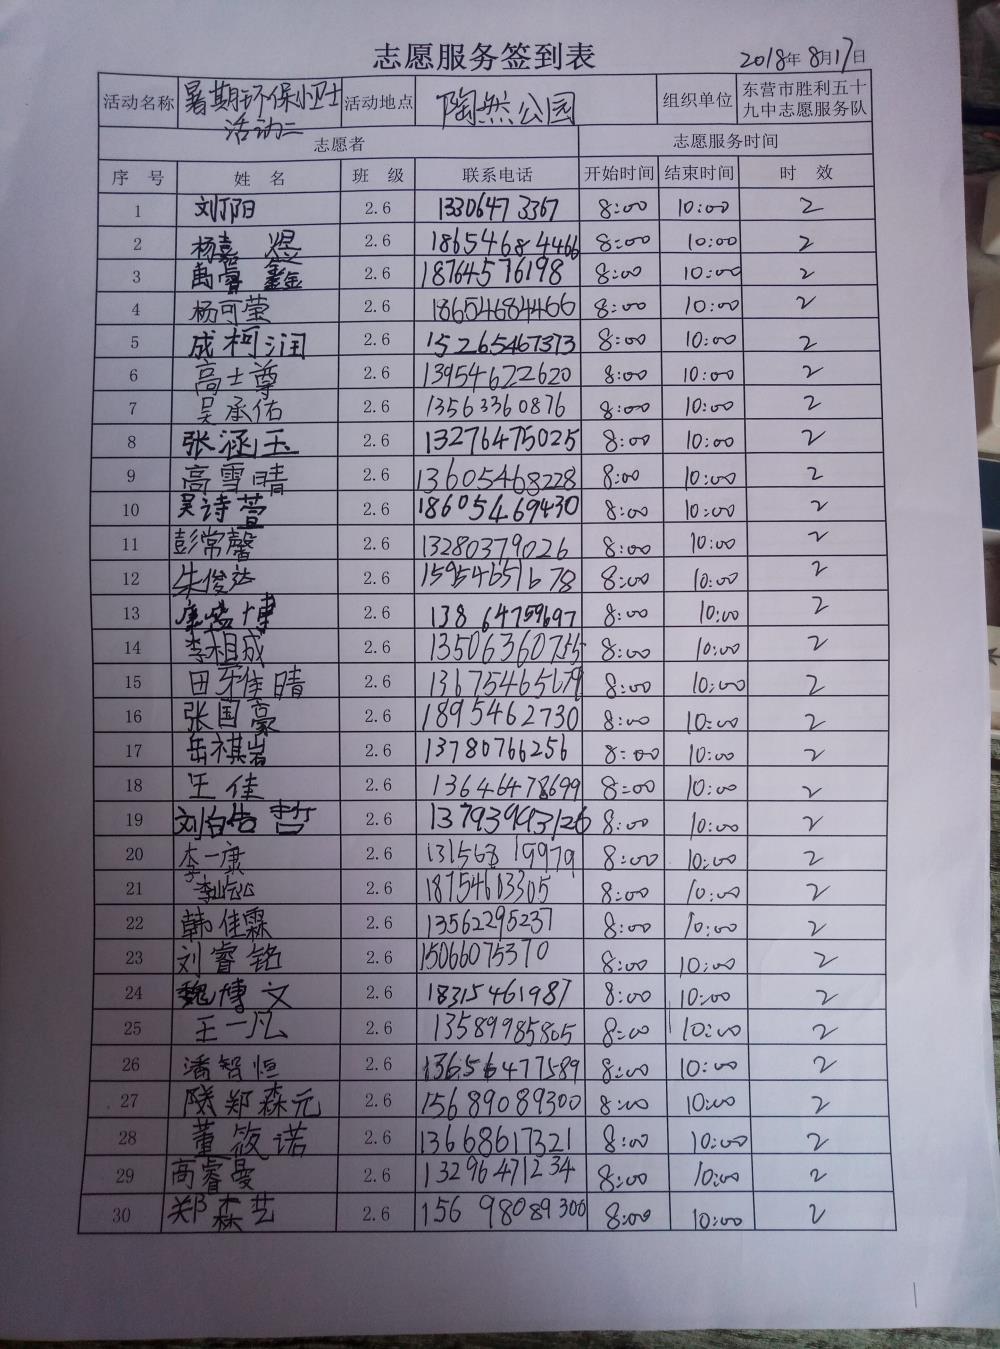 志愿服务签到表
2018年8月17日
活动名称 暑期环保小卫士活动二 活动地点 陶然公园 组织单位 东营市胜利五十九中志愿服务队
志愿者 志愿服务时间
序号 姓名 班级 联系电话 开始时间 结束时间 时效
1 刘阳 2.6 13306473367 8:00 10:00 2
2 杨嘉煜 2.6 18654684466 8:00 10:00 2
3 禹睿鑫 2.6 18764576198 8:00 10:00 2
4 杨可莹 2.6 18654684466 8:00 10:00 2
5 成柯润 2.6 15265467373 8:00 10:00 2
6 高士尊 2.6 13954622620 8:00 10:00 2
7 吴承佑 2.6 13563360876 8:00 10:00 2
8 张涵玉 2.6 13276475025 8:00 10:00 2
9 高雪晴 2.6 13605468228 8:00 10:00 2
10 吴诗萱 2.6 18605469430 8:00 10:00 2
11 彭常馨 2.6 13280379026 8:00 10:00 2
12 朱俊达 2.6 15954651678 8:00 10:00 2
13 2.6 13864759697 8:00 10:00 2
14 李相成 2.6 13506360755 8:00 10:00 2
15 田雅晴 2.6 13675465679 8:00 10:00 2
16 张国豪 2.6 1895462730 8:00 10:00 2
17 岳祺岩 2.6 13780766256 8:00 10:00 2
18 王佳 2.6 13646478699 8:00 10:00 2
19 刘皓哲 2.6 13793993126 8:00 10:00 2
20 李一康 2.6 13156819979 8:00 10:00 2
21 2.6 18754613305 8:00 10:00 2
22 韩佳霖 2.6 13562295237 8:00 10:00 2
23 刘睿铭 2.6 15066075370 8:00 10:00 2
24 魏博文 2.6 18315461987 8:00 10:00 2
25 王一凡 2.6 13589985805 8:00 10:00 2
26 潘智恒 2.6 13656477589 8:00 10:00 2
27 郑森元 2.6 15689089300 8:00 10:00 2
28 董筱诺 2.6 13668617321 8:00 10:00 2
29 高睿曼 2.6 13296471234 8:00 10:00 2
30 郑森艺 2.6 15698089300 8:00 10:00 2